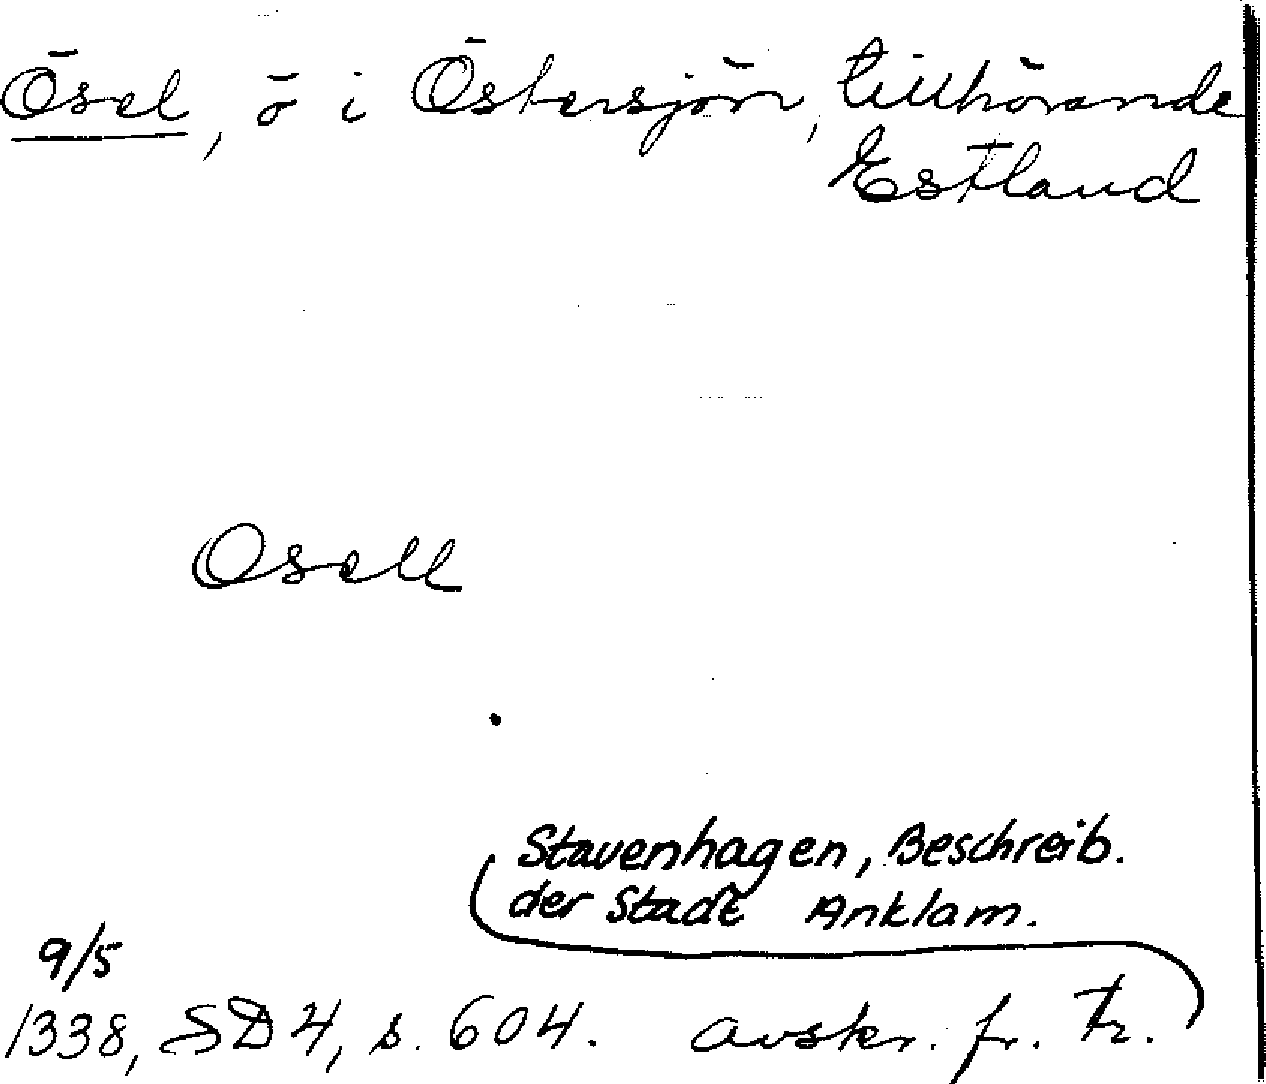 Ösel, ö i Östersjön, tillhörande
Estland
Osell
Stavenhagen, Beschreib.
der Stadt Anklam.
9/5
1338, SD 4, s. 604. avskr. fr. Tr.